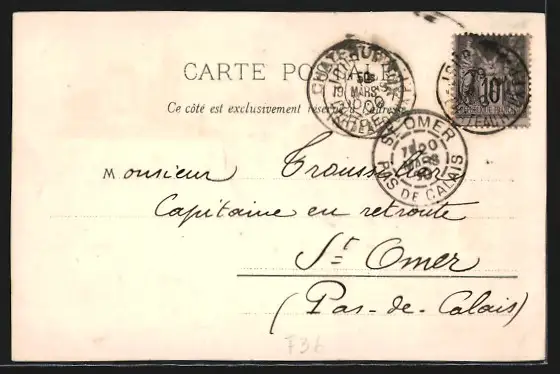 CARTE POSTALE
Ce côté est exclusivement réservé à l'adresse
Monsieur
Capitaine en retraite
St Omer
(Pas-de-Calais)
10
19 MARS
ST OMER
20
MARS
PAS DE CALAIS
F36